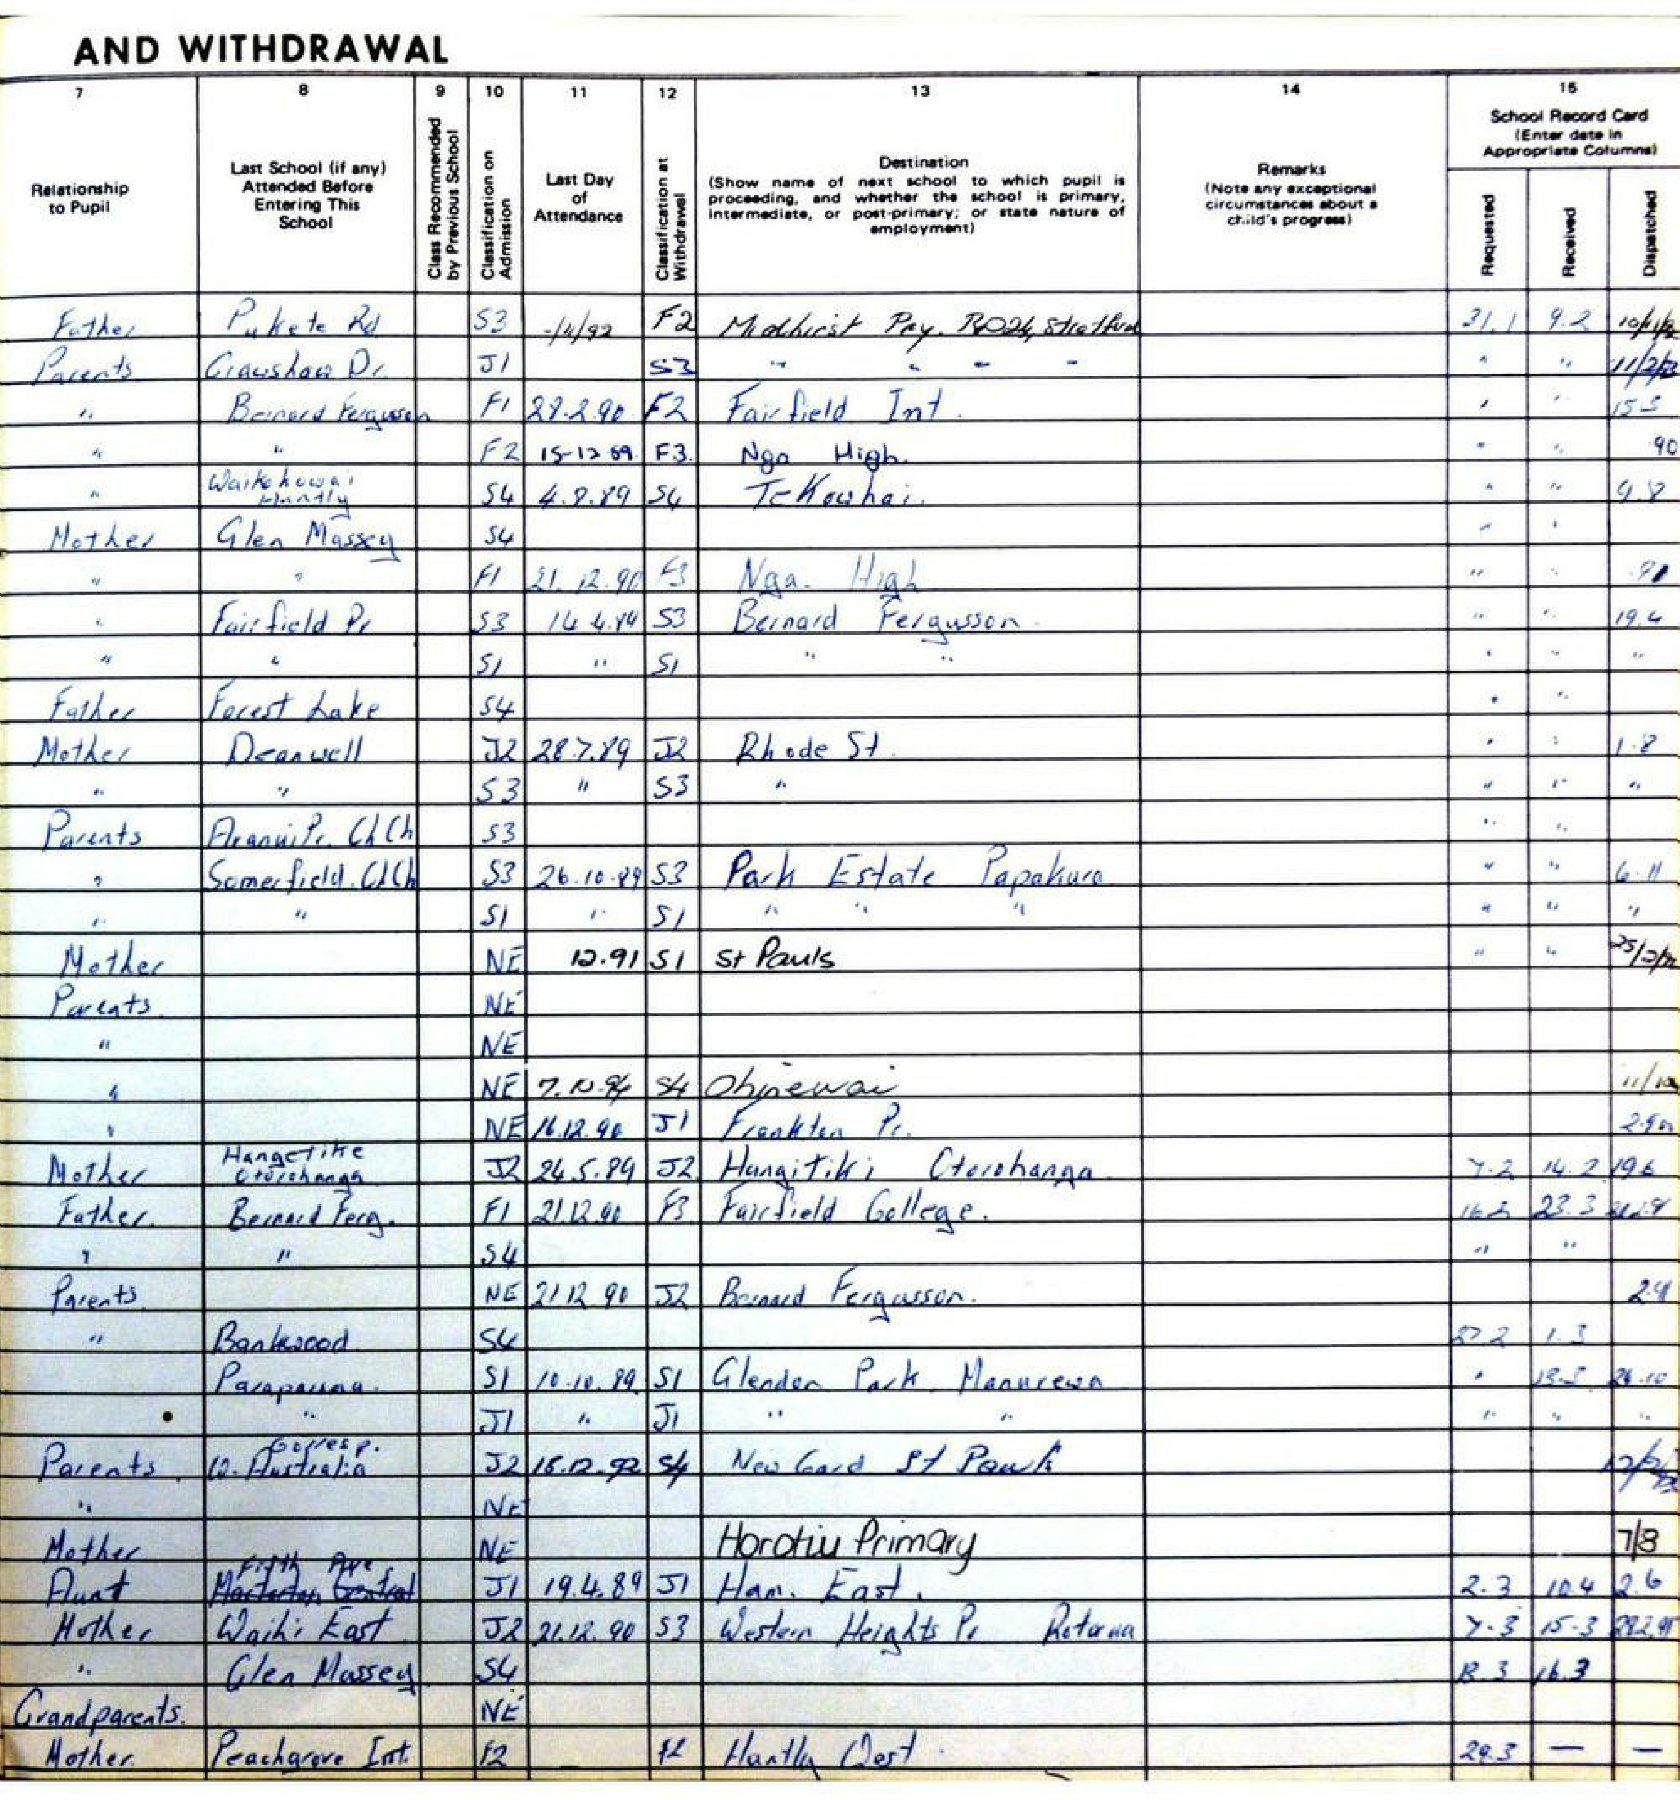 AND WITHDRAWAL
7 8 9 10 11 12 13 14 15
Relationship to Pupil
Last School (if any) Attended Before Entering This School
Class Recommended by Previous School
Classification on Admission
Last Day of Attendance
Classification at Withdrawal
Destination
(Show name of next school to which pupil is proceeding, and whether the school is primary, intermediate, or post-primary; or state nature of employment)
Remarks
(Note any exceptional circumstances about a child's progress)
School Record Card
(Enter date in Appropriate Columns)
Requested Received Dispatched
Father Pukete Rd S3 -/4/92 F2 Midhirst Stratford 31.1 9.2
Parents Crawshaw Dr. J1 S3 " " " " " " 11/2/
" Bernard Fergusson F1 28.2.90 F2 Fairfield Int. " " 15.3
" " F2 15-12 89. F3. Nga High. " " 90
" Waikokowai
Huntly S4 4.8.89 S4 Te Kowhai. " " 9.8
Mother Glen Massey S4 " "
" " F1 21.12.90 F3 Nga. High " " 91
" Fairfield Pr S3 14.4.89 S3 Bernard Fergusson. " " 19.4
" " S1 " S1 " " " " "
Father Forest Lake S4 " "
Mother Deanwell J2 28.7.89 J2 Rhode St. " " 1.8
" " S3 " S3 " " " "
Parents Aranui Pr. ChCh S3 " "
" Somerfield. ChCh S3 26.10.89 S3 Park Estate Papakura " " 6.11
" " S1 " S1 " " " " " "
Mother NE 12.91 S1 St Pauls " " 25/2/92
Parents. NE
" NE
" NE 7.10.94 S4 Ohinewai 11/10
" NE 16.12.90 J1 Frankton Pr.
Mother Hangetike
Otorohanga J2 24.5.89 J2 Hangitiki Otorohanga. 7.2 14.2 19.6
Father. Bernard Ferg. F1 21.12.90 F3 Fairfield College. 16.2 23.3
" " S4 " "
Parents NE 21 12.90 J2 Bernard Fergusson. 2.91
" Bankwood S4 27.2 1.3
Paraparaumu S1 10.10.89. S1 Glendon Park Manurewa " 26.10
" J1 " J1 " " " " "
Parents. Corresp.
W. Australia J2 15.12.92 S4 New Card St Pauls
" NE
Mother NE Horotiu Primary 7/8
Aunt Fifth Ave Masterton Central J1 19.4.89 J1 Ham. East. 2.3 10.4 2.6
Mother Waihi East J2 21.12.90 S3 Western Heights Pr Rotorua 7.3 15.3
" Glen Massey S4 8.3 16.3
Grandparents. NE
Mother. Peachgrove Int. F2 F2 Huntly West. 29.3 — —